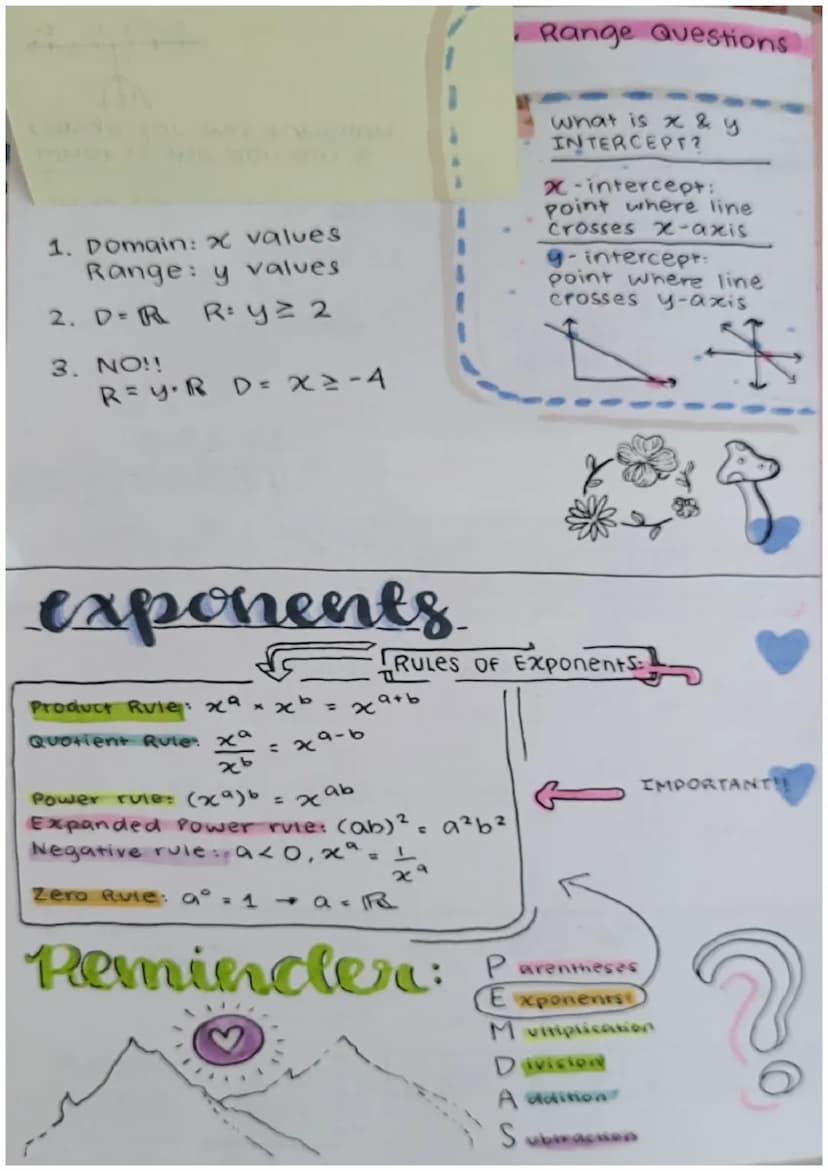 Range Questions
What is x & y
INTERCEPT?
x-intercept:
point where line
crosses x-axis
y-intercept:
point where line
crosses y-axis
1. Domain: x values
Range: y values
2. D = ℝ R: y ≥ 2
3. NO!!
R = y·ℝ D = x ≥ -4
exponents
RULES OF EXPONENTS:
Product Rule: xᵃ × xᵇ = xᵃ⁺ᵇ
Quotient Rule: xᵃ/xᵇ = xᵃ⁻ᵇ
Power rule: (xᵃ)ᵇ = xᵃᵇ
Expanded Power rule: (ab)² = a²b²
Negative rule: a < 0, xᵃ = 1/xᵃ
Zero Rule: a⁰ = 1 → a = ℝ
IMPORTANT!!
Reminder:
Parentheses
Exponents
Multiplication
Division
Addition
Subtraction